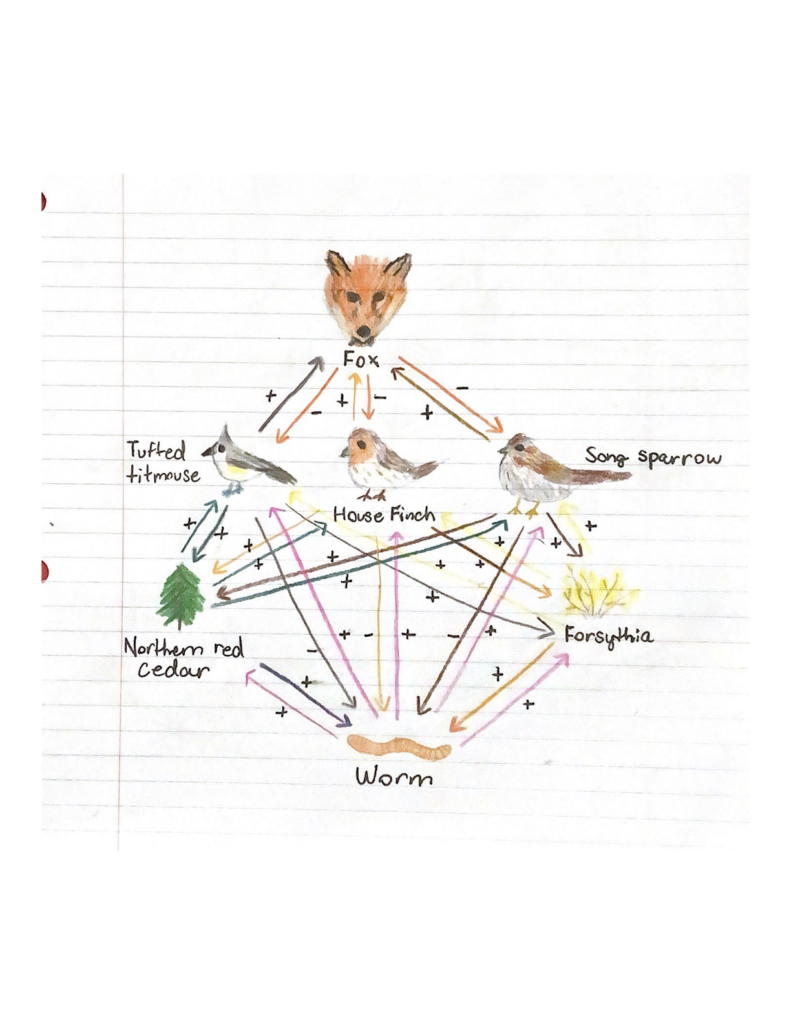 Fox
+ - + - + -
Tufted
titmouse
Song sparrow
House Finch
+ + + + + + + + + +
Northern red
Cedar
Forsythia
- + - + - +
+ + + +
Worm